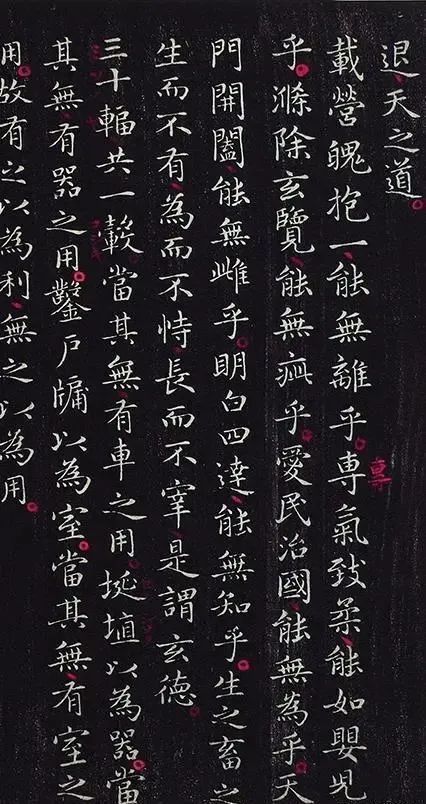 退天之道
載營魄抱一能無離乎専氣致柔能如嬰兒
乎滌除玄覽能無疵乎愛民治國能無為乎天
門開闔能無雌乎眀白四達能無知乎生之畜之
生而不有為而不恃長而不宰是謂玄德
三十輻共一轂當其無有車之用埏埴以為器當
其無有器之用鑿戶牖以為室當其無有室之
用故有之以為利無之以為用